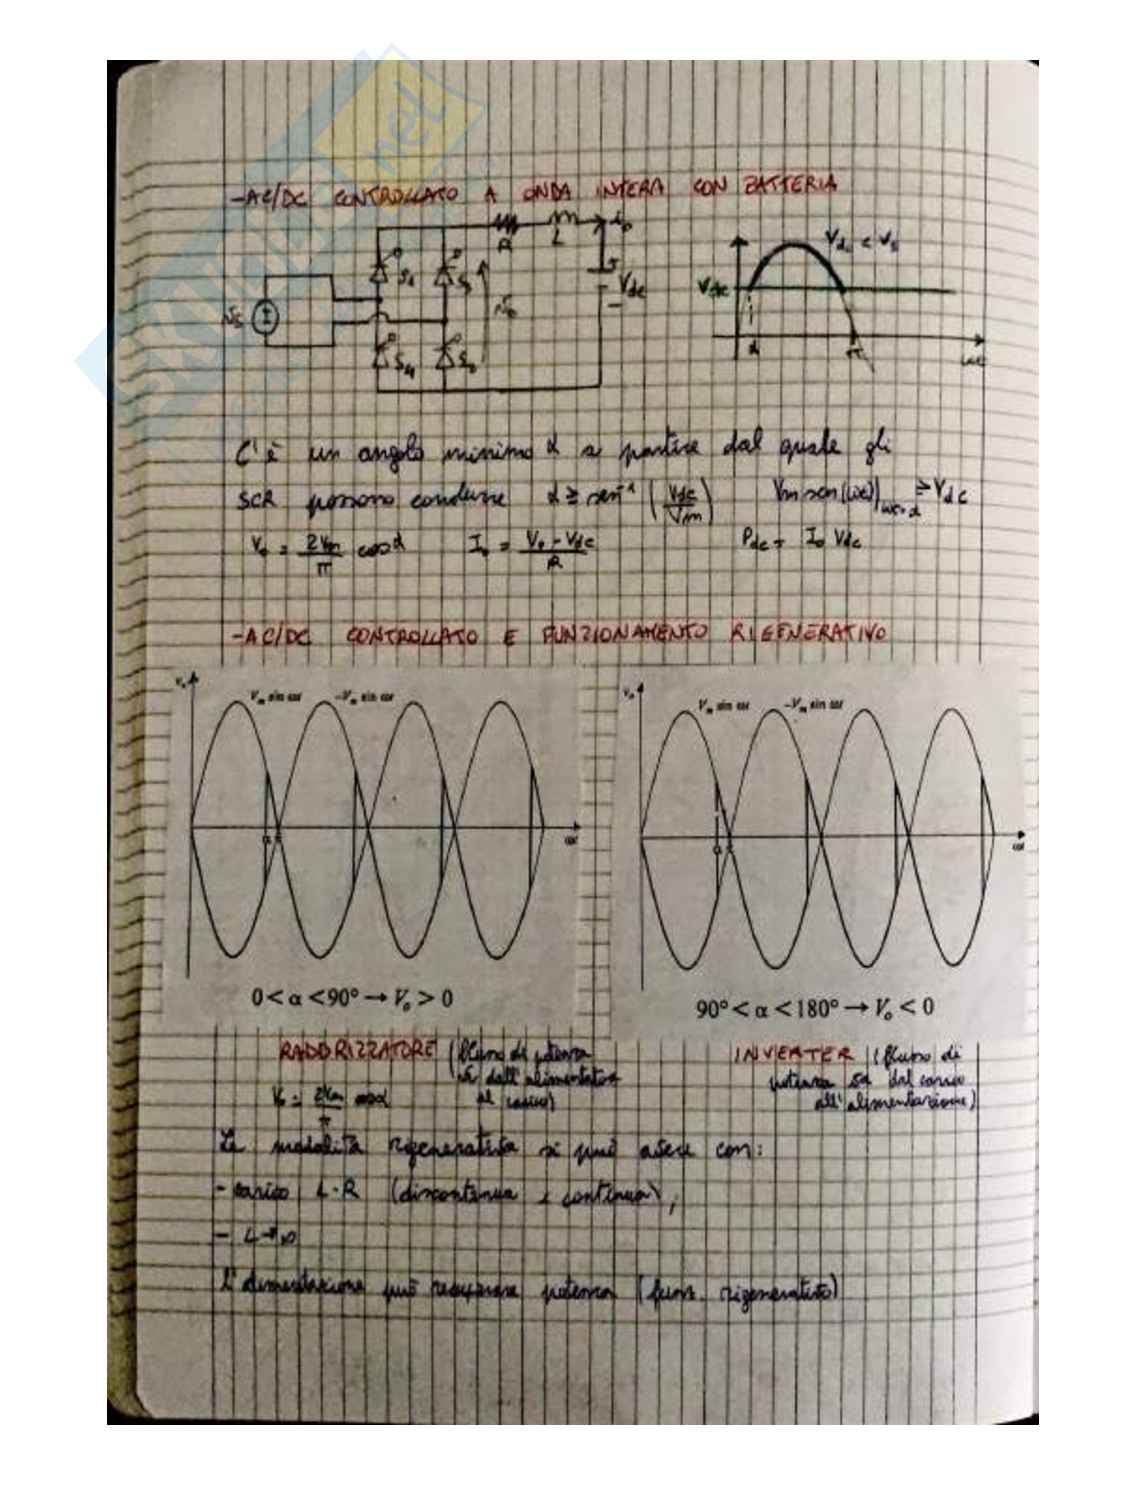 -AC/DC CONTROLLATO A ONDA INTERA CON BATTERIA
R L io
S1 S3 Vdc
Vs
S4 S2
Vdc < Vs
Vdc
α π ωt
C'è un angolo minimo α a partire dal quale gli
SCR possono condurre α ≥ sen⁻¹ (Vdc/Vm) Vm sen(ωt)|ωt=α ≥ Vdc
Vo = 2Vm/π cosα Io = Vo - Vdc/R Pdc = Io Vdc
-AC/DC CONTROLLATO E FUNZIONAMENTO RIGENERATIVO
Vo Vm sin ωt -Vm sin ωt
α π ωt
0 < α < 90° → Vo > 0
Vo Vm sin ωt -Vm sin ωt
α π ωt
90° < α < 180° → Vo < 0
RADDRIZZATORE (flusso di potenza
va dall'alimentazione
al carico)
Vo = 2Vm/π cosα
INVERTER (flusso di
potenza va dal carico
all'alimentazione)
La modalità rigenerativa si può avere con:
- carico L-R (discontinua e continua);
- L→∞
L'alimentazione può recuperare potenza (funz. rigenerativo)